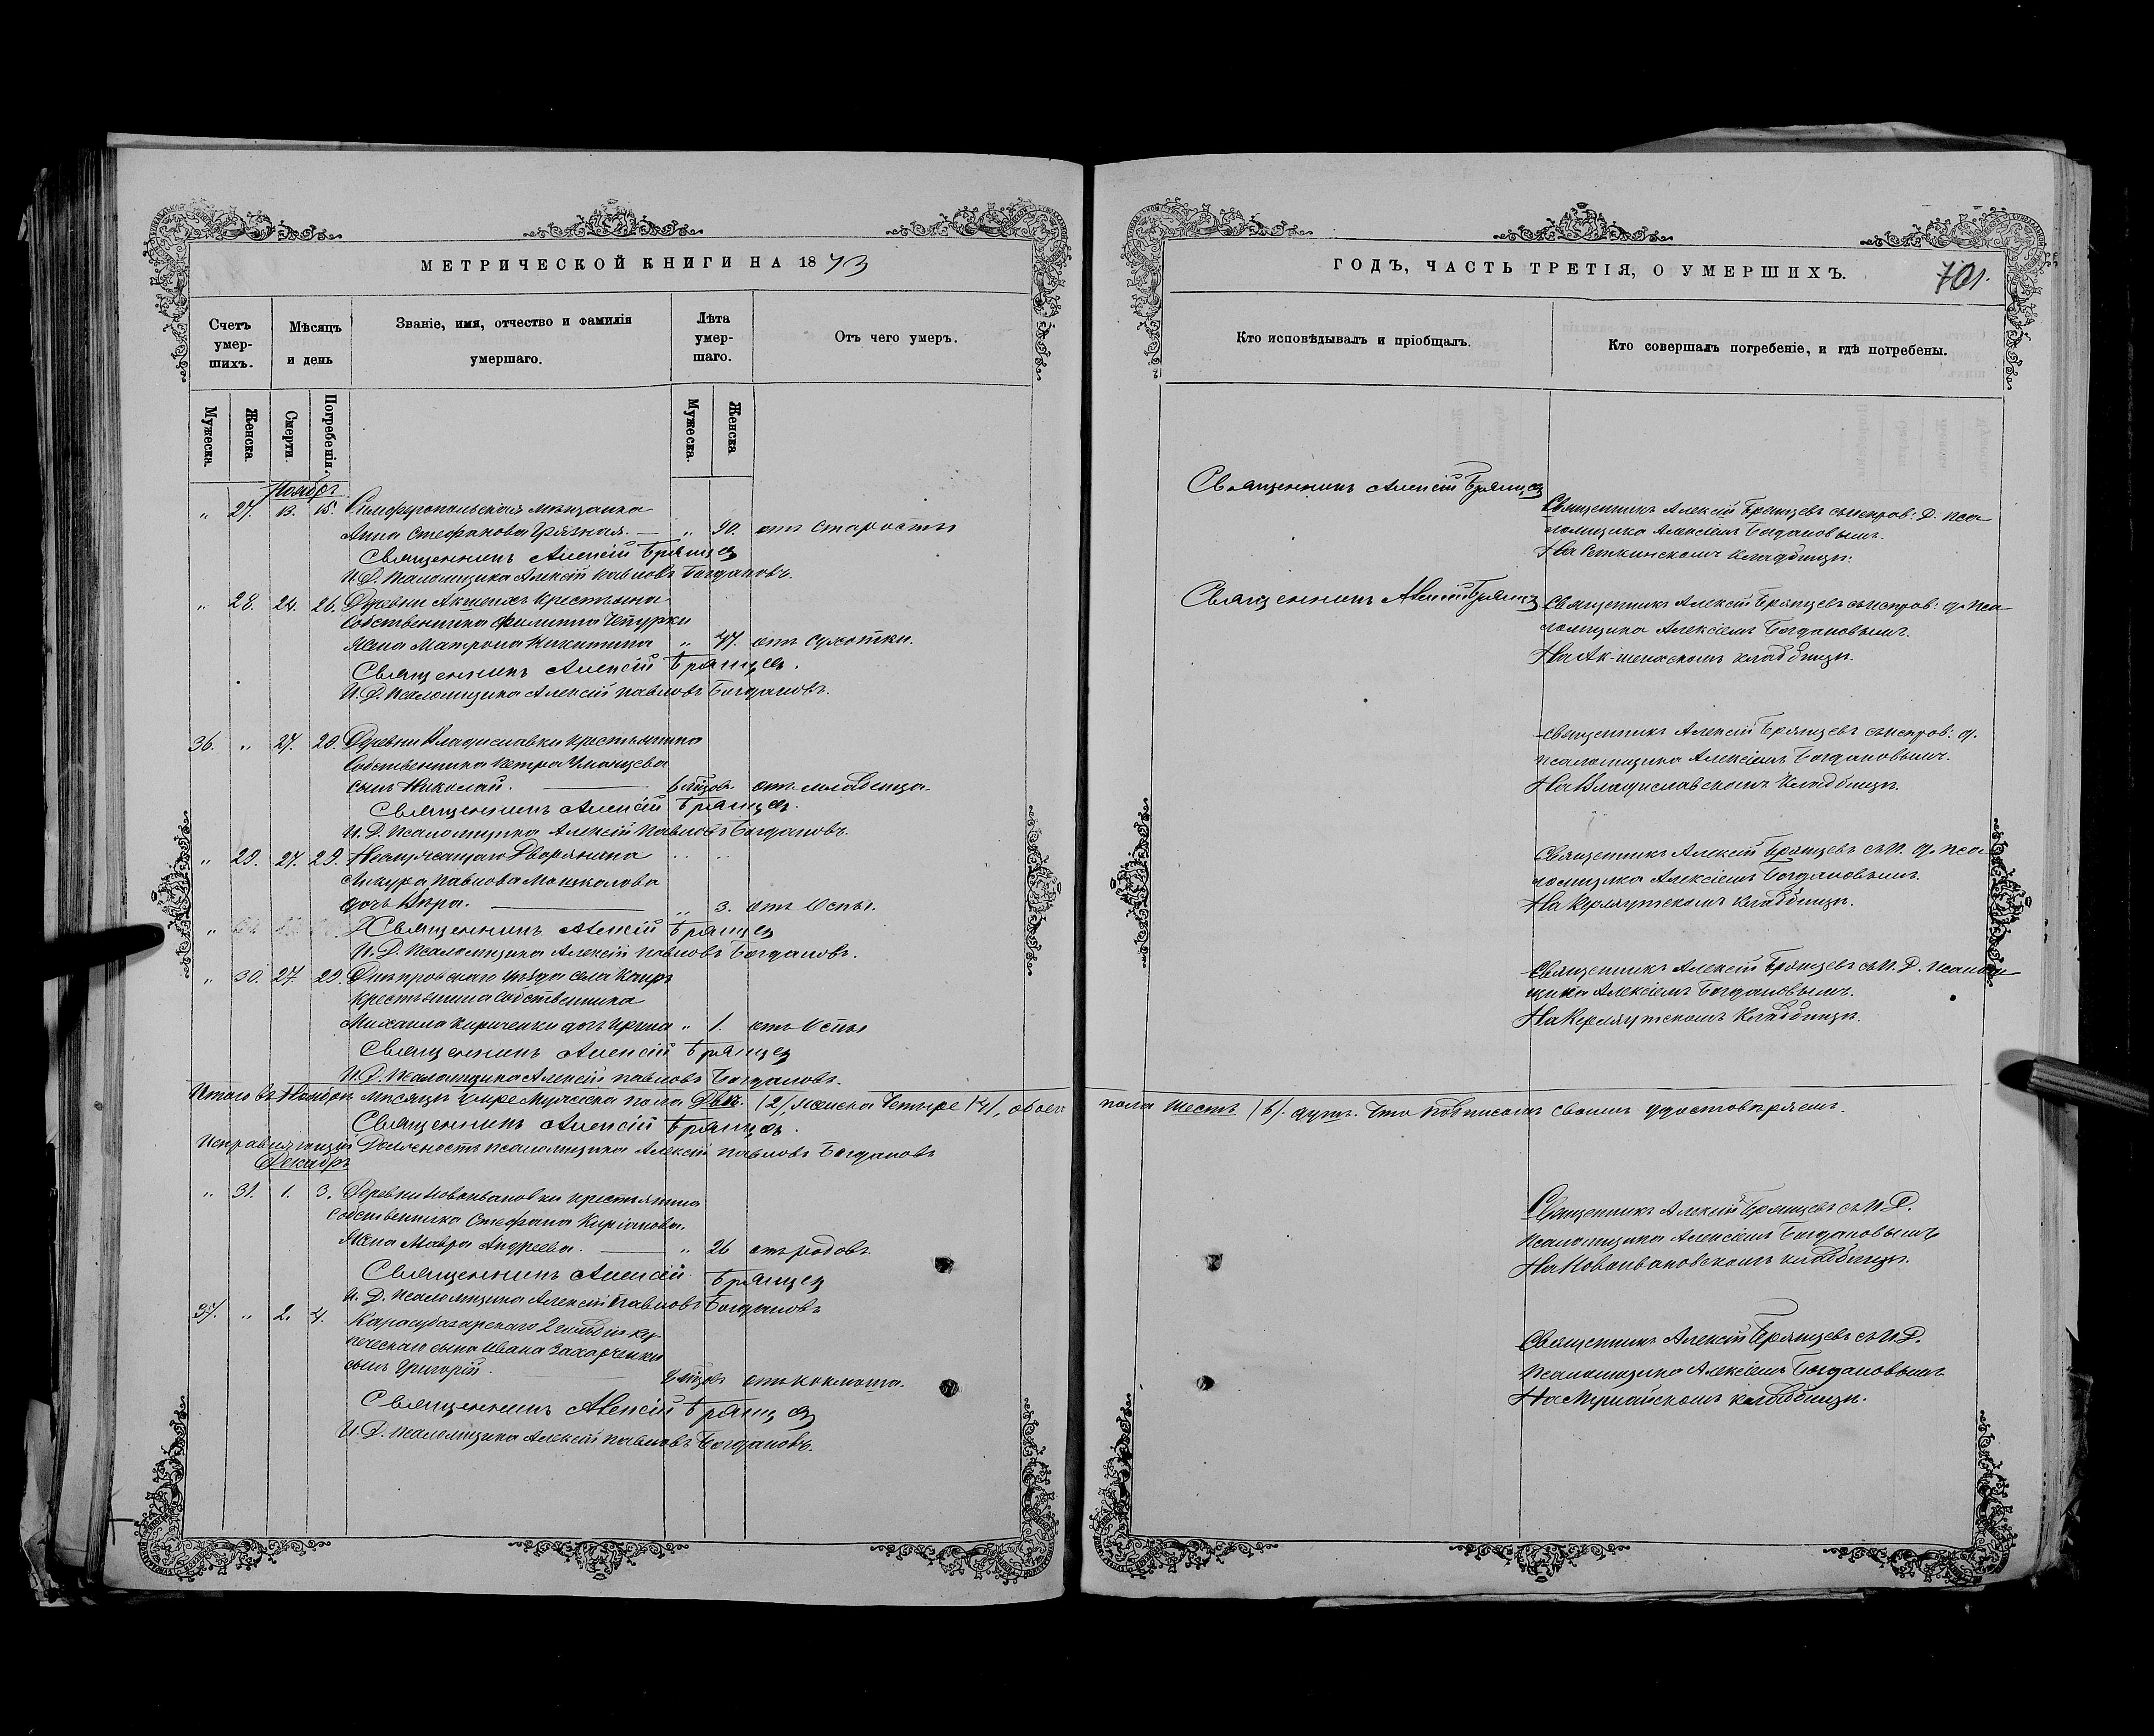 МЕТРИЧЕСКОЙ КНИГИ НА 1873
Счетъ умер-шихъ.
Мѣсяцъ и день
Званіе, имя, отчество и фамилія умершаго.
Лѣта умер-шаго.
Отъ чего умеръ.
Мужеска.
Женска.
Смерти.
Погребенія.
Мужеска.
Женска
Ноябрь
„ 27. 13. 15. Симферопольская мѣщанка
Анна Стефанова — „ 90. отъ старости
Священникъ Алексій Брянцевъ
И. Д. Псаломщика Алексій Павловъ Богдановъ.
„ 28. 24. 26. Деревни Акшеихъ крестьянина
собственника Филиппа
жена Матрона Никитина „ 47. отъ сухотки.
Священникъ Алексій Брянцевъ.
И. Д. Псаломщика Алексій Павловъ Богдановъ.
36. „ 27. 28. Деревни Владиславки крестьянина
собственника Петра
сынъ Николай. отъ
Священникъ Алексій Брянцевъ.
И. Д. Псаломщика Алексій Павловъ Богдановъ.
„ 29. 27. 29. Дворянина
Павлова
дочь Вѣра. „ 3. отъ Оспы.
Священникъ Алексій Брянцевъ
И. Д. Псаломщика Алексій Павловъ Богдановъ.
„ 30. 27. 29. Днѣпровскаго уѣзда села Каиръ
крестьянина собственника
Михаила Кириченки дочь Ирина „ 1. отъ Оспы
Священникъ Алексій Брянцевъ
И. Д. Псаломщика Алексій Павловъ Богдановъ.
Итого въ Ноябрѣ мѣсяцѣ умре Мужеска пола Два. (2), женска Четыре (4), обоего
Священникъ Алексій Брянцевъ.
Исправляющій Должность псаломщика Алексій Павловъ Богдановъ
Декабрь
„ 31. 1. 3. Деревни Новоивановки крестьянина
собственника Стефана Киріанова.
жена Мавра Андреева. — „ 26 отъ родовъ
Священникъ Алексій Брянцевъ
И. Д. Псаломщика Алексій Павловъ Богдановъ
37. „ 2. 4. Карасубазарскаго 2 гильдіи ку-
печескаго сына Ивана Захарченки
сынъ Григорій. отъ коклюша.
Священникъ Алексій Брянцевъ
И. Д. Псаломщика Алексій Павловъ Богдановъ.
ГОДЪ, ЧАСТЬ ТРЕТІЯ, О УМЕРШИХЪ.
701.
Кто исповѣдывалъ и пріобщалъ.
Кто совершалъ погребеніе, и гдѣ погребены.
Священникъ Алексій Брянцевъ
Священникъ Алексій Брянцевъ съ исправ: Д. пса-
ломщика Алексіемъ Богдановымъ.
На кладбищѣ.
Священникъ Алексій Брянцевъ
Священникъ Алексій Брянцевъ съ исправ: д. пса-
ломщика Алексіемъ Богдановымъ.
На Ак-шеихскомъ кладбищѣ.
Священникъ Алексій Брянцевъ съ исправ: д.
псаломщика Алексіемъ Богдановымъ.
На Владиславскомъ кладбищѣ.
Священникъ Алексій Брянцевъ съ И. д. пса-
ломщика Алексіемъ Богдановымъ.
На кладбищѣ.
Священникъ Алексій Брянцевъ съ И. Д. псалом-
щика Алексіемъ Богдановымъ.
На кладбищѣ.
пола Шесть (6). душъ. Что подписомъ своимъ удостовѣряемъ.
Священникъ Алексій Брянцевъ съ И. Д.
псаломщика Алексіемъ Богдановымъ
На Новоивановскомъ кладбищѣ.
Священникъ Алексій Брянцевъ съ И. Д.
Псаломщика Алексіемъ Богдановымъ
На кладбищѣ.